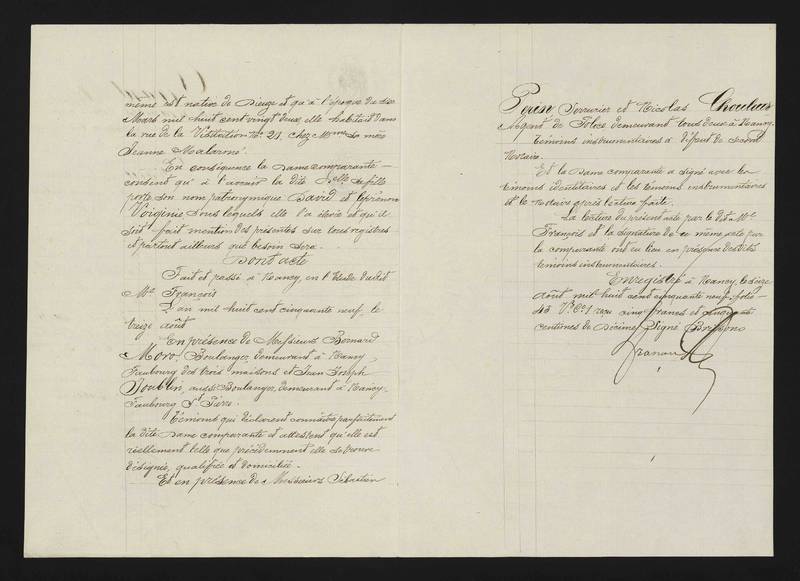 même est native de Dieuze et qu'à l'époque du six
Mars mil huit cent vingt deux, elle habitait dans
la rue de la Visitation No. 21, chez Mme sa mère
Jeanne Malarmé.
En conséquence la Dame comparante
consent qu'à l'avenir la dite Delle. sa fille
porte son nom patronymique David et les prénoms
Virginie sous lesquels elle l'a élevée et qu'il
soit fait mention des présentes sur tous registres
et partout ailleurs que besoin sera.
Dont acte
Fait et passé à Nancy, en l'Etude du dit
Me. François
L'an mil huit cent cinquante neuf, le
treize août
En présence de Messieurs Bernard
Morol, Boulanger, demeurant à Nancy
Faubourg des trois maisons et Jean Joseph
Doublin, aussi Boulanger, demeurant à Nancy,
Faubourg St. Pierre.
Témoins qui déclarent connaître parfaitement
la dite Dame comparante et attestent qu'elle est
réellement telle que précédemment elle se trouve
désignée, qualifiée et domiciliée.
Et en présence de Messieurs Sébastien
Serrurier et Nicolas
Agent de Police demeurant tous deux à Nancy,
témoins instrumentaires à défaut de second
Notaire.
Et la Dame comparante a signé avec les
témoins identitaires et les témoins instrumentaires
et le Notaire après lecture faite.
La lecture du présent acte par le dit Me.
François et la signature de ce même acte par
la comparante ont eu lieu en présence des dits
témoins instrumentaires.
Enregistré à Nancy, le seize
août mil huit cent cinquante neuf, folio
43 Vo. Co. 1 reçu cinq francs et cinquante
centimes de décime. Signé